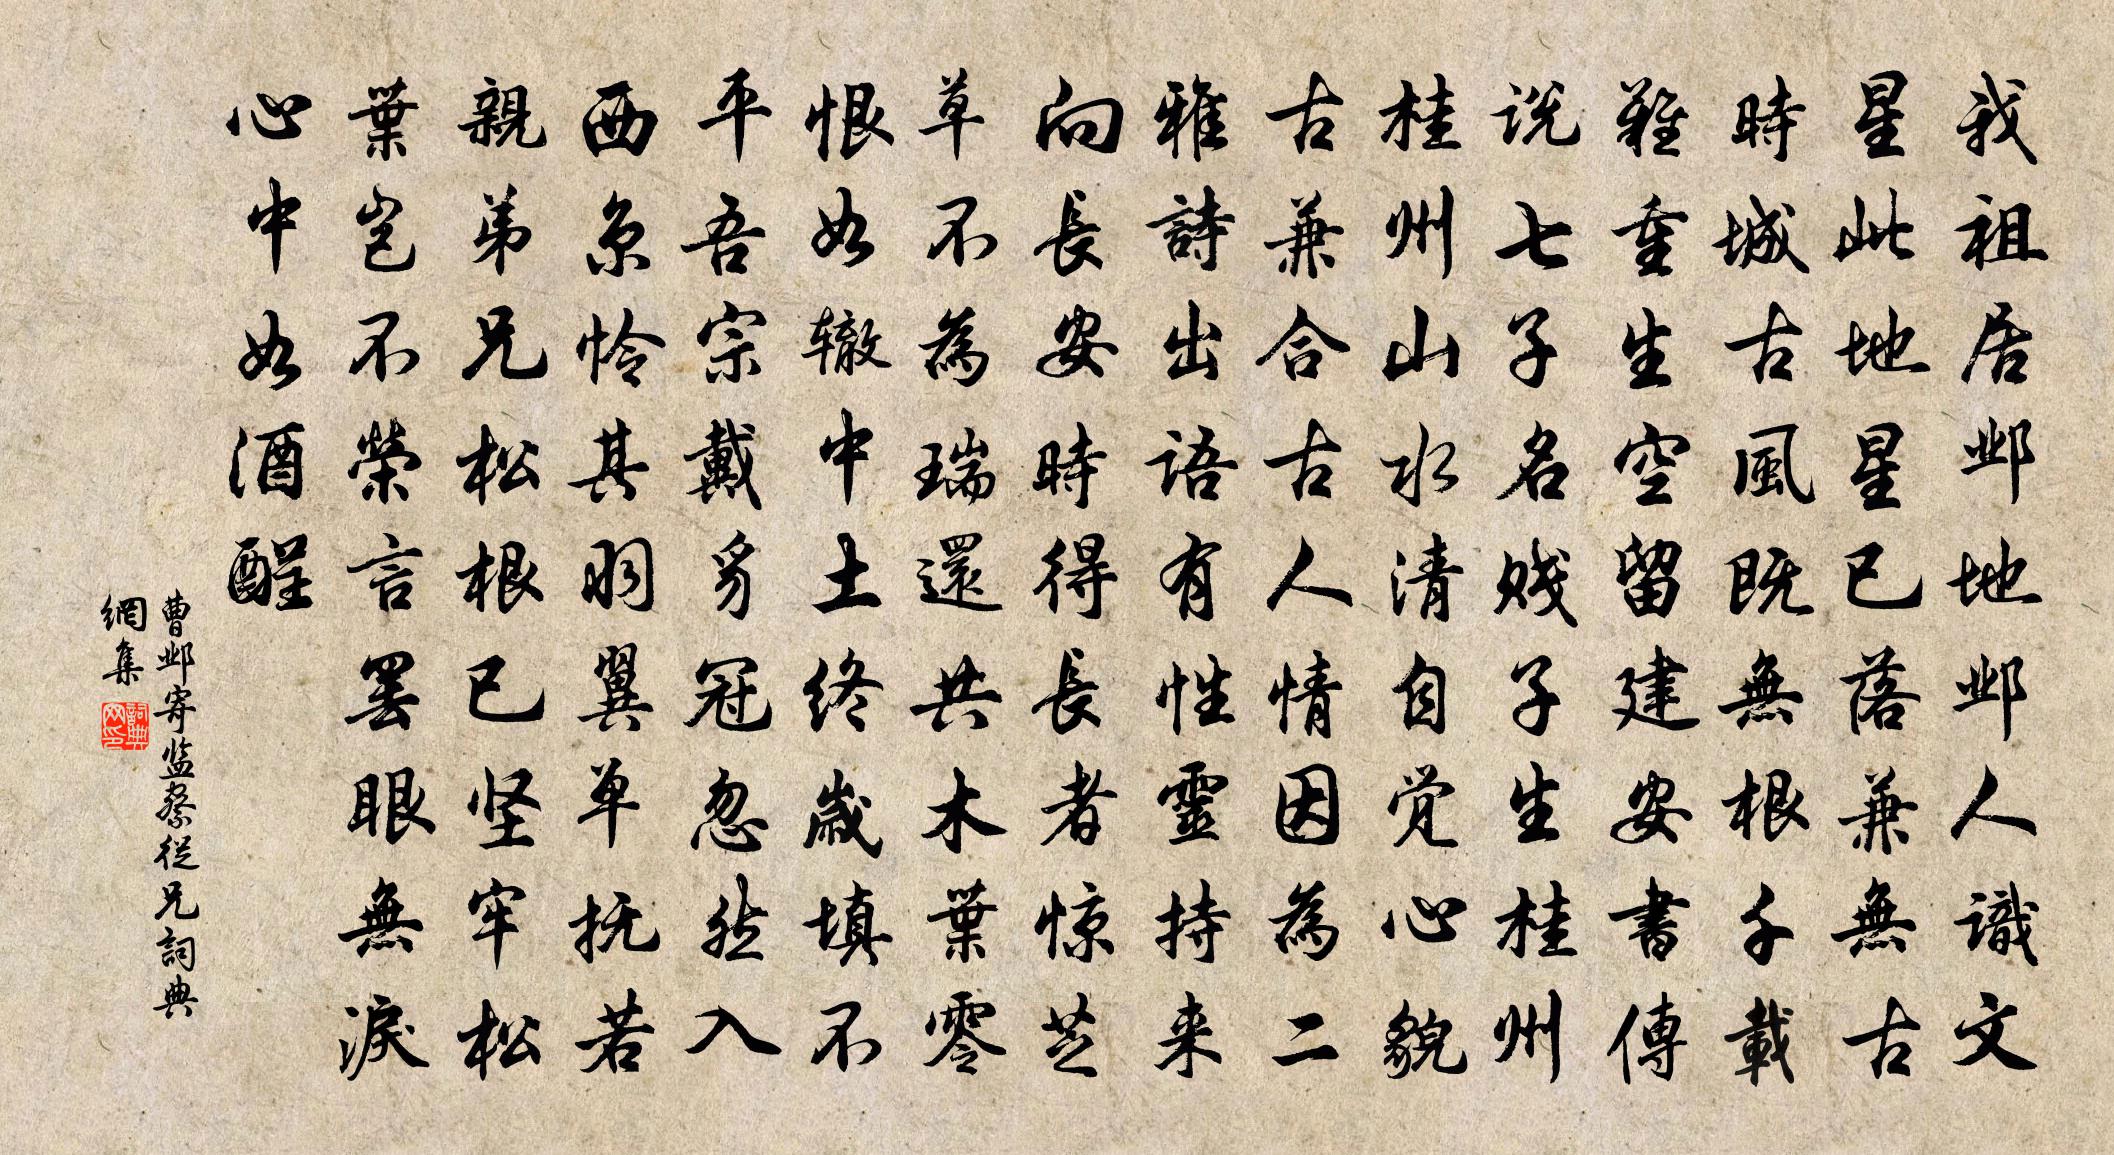 我祖居邺地邺人識文
星此地星已落兼無古
時城古風既無根千載
難重生空留建安書傳
说七子名贱子生桂州
桂州山水清自觉心貌
古兼合古人情因為二
雅詩出语有性靈持来
向長安時得長者惊芝
草不為瑞還共木葉零
恨如辙中土终歲填不
平吾宗戴豸冠忽然入
西京怜其羽翼单抚若
親弟兄松根已坚牢松
葉岂不榮言罢眼無淚
心中如酒醒
曹邺寄监察從兄詞典
網集
詞典网印